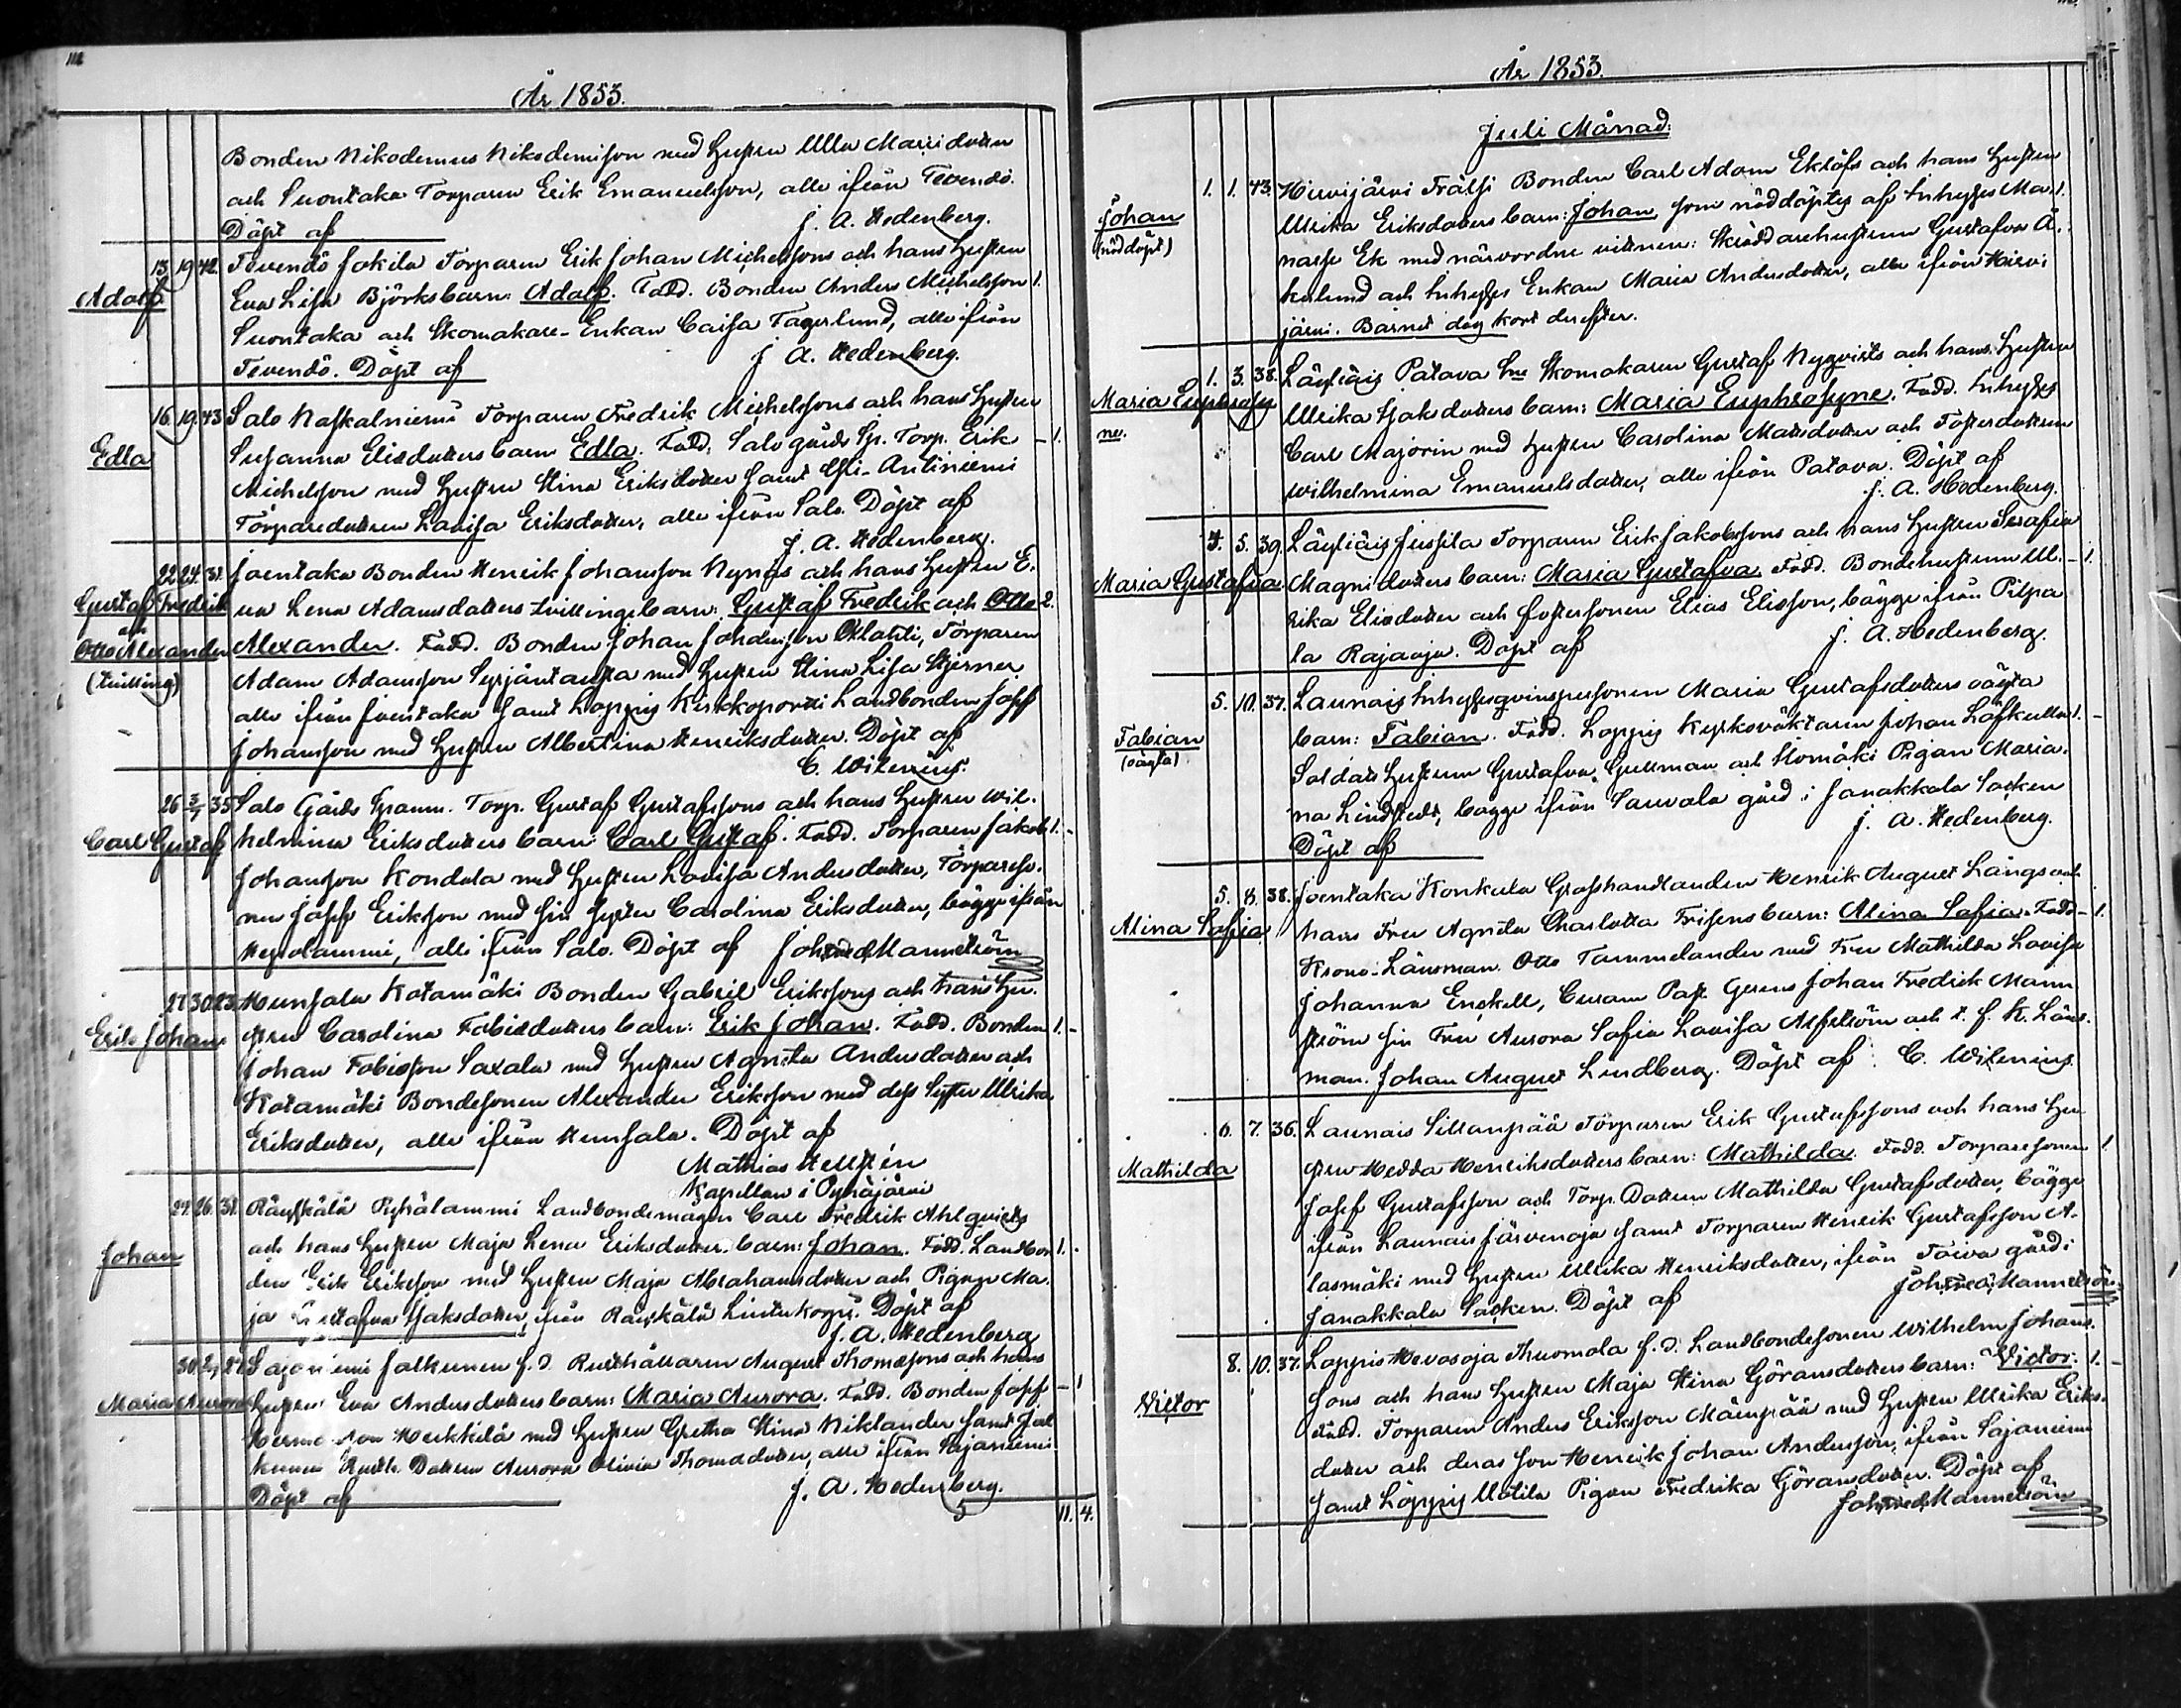 År 1853.
Bonden Nikodemus Nikodemisson med hustru Ulla Mariidotter
och Suontaka Torparen Erik Emanuelsson, alle ifrån Tevendö.
Döpt af J. A. Hedenberg.
Adolf
13. 19. 42. Tevendö Jokila Torparen Erik Johan Michelssons och hans hustru
Eva Lisa Björks barn: Adolf. Fadd. Bonden Anders Michelsson 1.
Suontaka och Skomakare-Enkan Caisa Fagerlund, alle ifrån
Tevendö. Döpt af J. A. Hedenberg.
Edla
16. 19. 43. Salo Naskalniemi Torparen Fredrik Michelssons och hans hustru
Susanna Eliedotters barn Edla. Fadd. Salo gårds Sp. Torp. Erik - 1.
Michelsson med hustru Stina Eriksdotter samt Yli-Antiniemi
Torparedottren Lovisa Eriksdotter, alle ifrån Salo. Döpt af
J. A. Hedenberg.
Gustaf Fredrik
och
Otto Alexander
(tvilling)
22. 24. 31. Joentaka Bonden Henrik Johansson Nynäs och hans hustru E-
va Lena Adamsdotters tvillingebarn: Gustaf Fredrik och Otto 2.
Alexander. Fadd. Bonden Johan Johansson Ollahti, Torparen
Adam Adamsson Syrjäntausta med hustru Stina Lisa Stjerner
alle ifrån Joentaka samt Loppis Kirkkoportti Landbonden Josef
Johansson med hustru Albertina Henriksdotter. Döpt af
C. Wilenius.
Carl Gustaf
26. 3/7 35. Salo Gårds Spanm. Torp. Gustaf Gustafssons och hans hustru Wil-
helmina Eriksdotters barn: Carl Gustaf. Fadd. Torparen Jakob 1. -
Johansson Kondola med hustru Lovisa Andersdotter, Torpareso-
nen Josef Eriksson med sin syster Carolina Eriksdotter, bägge ifrån
alle ifrån Salo. Döpt af Joh. Fred. Mannström
Erik Johan
27. 30. 23. Hunsala Kotamäki Bonden Gabriel Erikssons och hans hu-
stru Carolina Tobiedotters barn: Erik Johan. Fadd. Bonden 1. -
Johan Tobiesson Saxala med hustru Agneta Andersdotter och
Kotamäki Bondesonen Alexander Eriksson med dess syster Ulrika
Eriksdotter, alle ifrån Hunsala. Döpt af
Mathias Hellstén
Kapellan i Pyhäjärvi
Johan
24. 26. 31. Räyskälä Pyhälammi Landbondemågen Carl Fredrik Ahlqvists
och hans hustru Maja Lena Eriksdotters barn: Johan. Fadd. Landbon 1.
den Erik Eriksson med hustru Maja Abrahamsdotter och Pigan Ma-
ja Gustafva Isaksdotter, ifrån Räyskälä Lintukorpi. Döpt af
J. A. Hedenberg
Maria Aurora
30. 2/7 27. Sajaniemi Jalkunen f. d. Rusthållaren August Thomassons och hans
hustru Eva Andersdotters barn: Maria Aurora. Fadd. Bonden Josef - 1
Hermansson Heikkilä med hustru Gretha Stina Niklander samt Jal
kunen Rusth. Dottren Aurora Olivia Thomasdotter, alle ifrån Sajaniemi
Döpt af J. A. Hedenberg.
5 11. 4.
År 1853.
Juli Månad.
Johan
(nöddöpt)
1. 1. 43. Hirvijärvi Frälse Bonden Carl Adam Eklöfs och hans hustru
Ulrika Eriksdotters barn: Johan som nöddöptes af Inhyses Ma- 1.
nasse Ek med närvordne vittnen: Skräddarehustrun Gustafva Å-
kelund och Inhyses Enkan Maria Andersdotter, alle ifrån Hirvi-
järvi. Barnet dog kort derefter.
Maria Euphrosy
ne.
1. 3. 38. Läyliäis Patava Inh. Skomakaren Gustaf Nyqvists och hans hustru
Ulrika Isaksdotters barn: Maria Euphrosyne. Fadd. Inhyses
Carl Majorin med hustru Carolina Matsdotter och Fosterdottren
Wilhelmina Emanuelsdotter, alle ifrån Patava. Döpt af
J. A. Hedenberg.
Maria Gustafva
4. 5. 39. Läyliäis Jussila Torparen Erik Jakobssons och hans hustru Serafia
Magnidotters barn: Maria Gustafva. Fadd. Bondehustrun Ul- - 1.
rika Eliedotter och fostersonen Elias Elisson, bägge ifrån Pilpa
la Rajaoja. Döpt af J. A. Hedenberg.
Fabian
(oägta)
5. 10. 37. Launais Inhysesqvinspersonen Maria Gustafsdotters oägta
barn: Fabian. Fadd. Loppis Kyrkovaktaren Johan Löfkulla 1. -
Soldats hustrun Gustafva Gullman och Uomäki Pigan Maria-
na Lindstedt, bägge ifrån Sauvala gård i Janakkala Socken
Döpt af J. A. Hedenberg.
Alina Sofia
5. 8. 38. Joentaka Konkula Grosshandlanden Henrik August Långs och
hans Fru Agneta Charlotta Frisens barn: Alina Sofia. Fadd - 1.
Krono-Länsman Otto Tammelander med Fru Mathilda Lovisa
Johanna Enckell, Curam Past. Gerens Johan Fredrik Mann
ström sin Fru Aurora Sofia Lovisa Alfström och t. f. K. Läns-
man Johan August Lindberg. Döpt af C. Wilenius.
Mathilda
6. 7. 36. Launais Sillanpää Torparen Erik Gustafssons och hans hu-
stru Hedda Henriksdotters barn: Mathilda. Fadd. Torparesonen 1
Josef Gustafsson och Torp. Dottren Mathilda Gustafsdotter, bägge
ifrån Launais Järvenoja samt Torparen Henrik Gustafsson A-
lasmäki med hustru Ulrika Henriksdotter, ifrån Toiva gård i
Janakkala Socken. Döpt af Joh. Fred. Mannström
Victor
8. 10. 37. Loppis Hevosoja Thuomola f. d. Landbondesonen Wilhelm Johans-
sons och hans hustru Maja Stina Göransdotters barn: Victor. 1. -
Fadd. Torparen Anders Eriksson Mäenpää med hustru Ulrika Eriks-
dotter och deras son Henrik Johan Andersson, ifrån Sajaniemi
samt Loppis Uotila Pigan Fredrika Göransdotter. Döpt af
Joh. Fred. Mannström